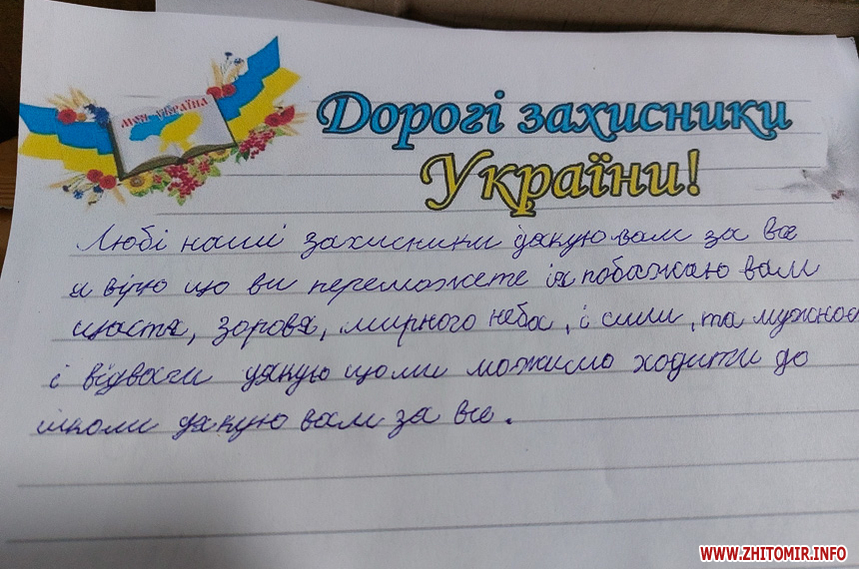 МОЯ УКРАЇНА
Дорогі захисники
України!
Любі наші захисники дякую вам за все
я вірю що ви переможете і я побажаю вам
щастя, здоровя, мирного неба, і сили, та мужност
і відваги дякую що ми можимо ходити до
школи дякую вам за все.
WWW.ZHITOMIR.INFO